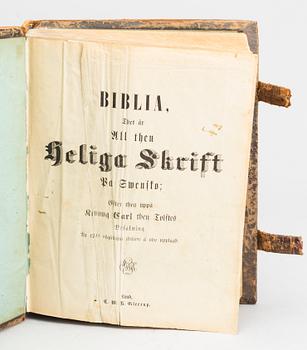 BIBLIA,
Thet är
All then
Heliga Skrift
På Swensko;
Efter then uppå
Konung Carl then Tolftes
Befalning
Lund,
C. W. K. Gleerup.